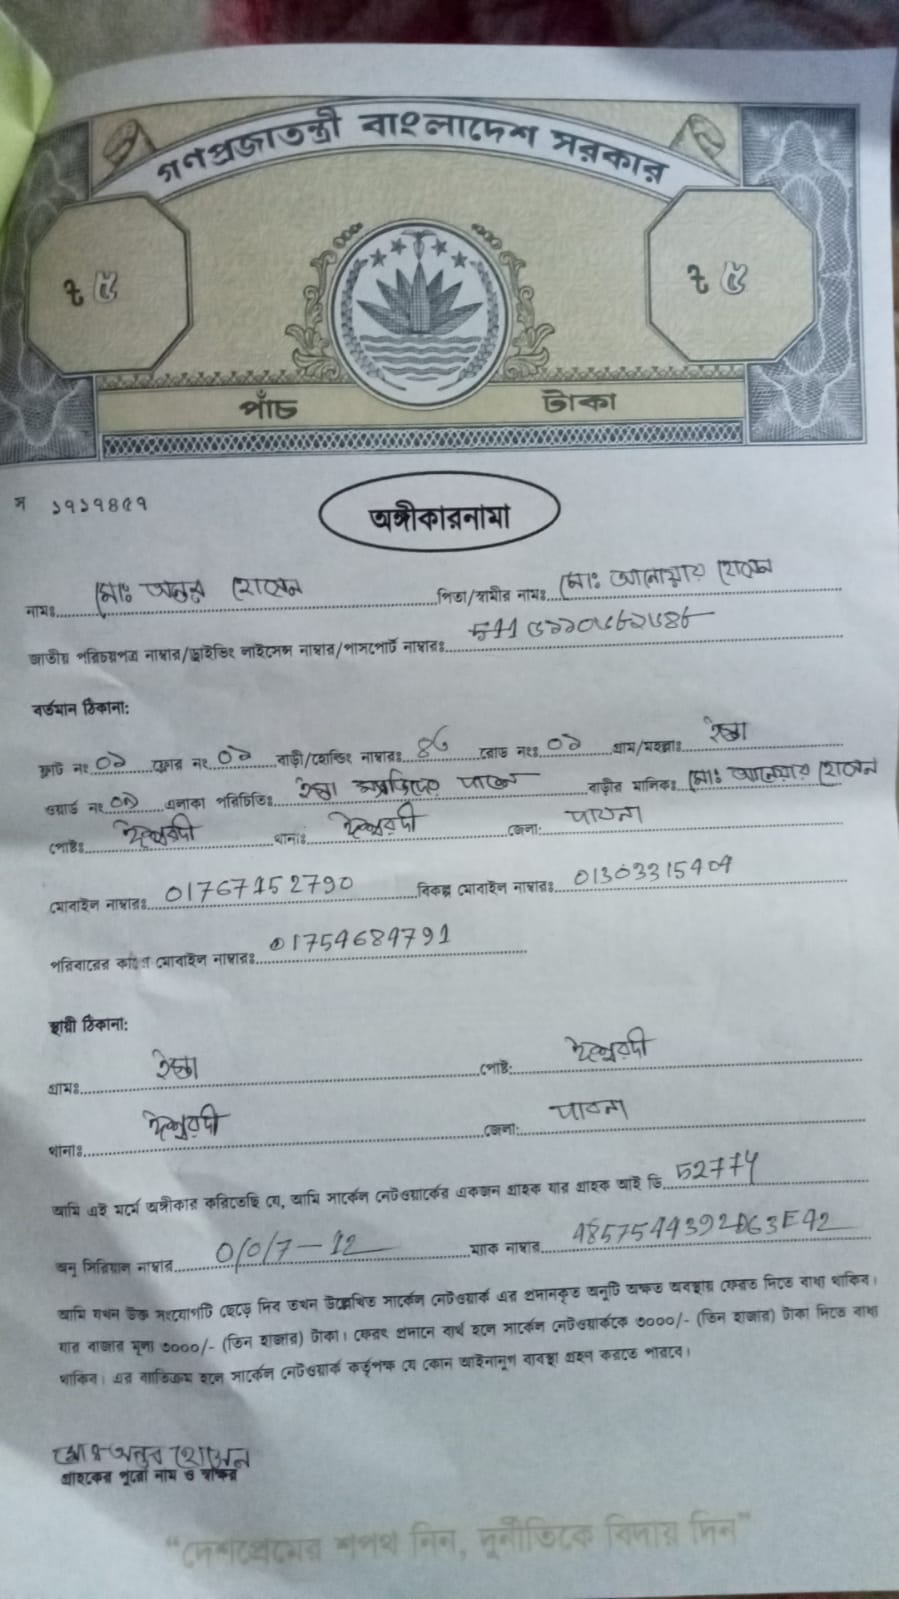 গণপ্রজাতন্ত্রী বাংলাদেশ সরকার
₹ ৫ ₹ ৫
পাঁচ টাকা
স ১৭১৭৪৫৭
অঙ্গীকারনামা
নামঃ মোঃ অন্তর হোসেন পিতা/স্বামীর নামঃ মোঃ আনোয়ার হোসেন
জাতীয় পরিচয়পত্র নাম্বার/ড্রাইভিং লাইসেন্স নাম্বার/পাসপোর্ট নাম্বারঃ
বর্তমান ঠিকানা:
ফ্লাট নং ০১ ফ্লোর নং ০১ বাড়ী/হোল্ডিং নাম্বারঃ ৪৬ রোড নংঃ ০১ গ্রাম/মহল্লাঃ
ওয়ার্ড নং ০১ এলাকা পরিচিতিঃ মসজিদের পাশে বাড়ীর মালিকঃ মোঃ আনোয়ার হোসেন
পোষ্টঃ ঈশ্বরদী থানাঃ ঈশ্বরদী জেলা: পাবনা
মোবাইল নাম্বারঃ 01767152790 বিকল্প মোবাইল নাম্বারঃ 01303315909
পরিবারের কারো মোবাইল নাম্বারঃ 01754684791
স্থায়ী ঠিকানা:
গ্রামঃ পোষ্ট: ঈশ্বরদী
থানাঃ ঈশ্বরদী জেলা: পাবনা
আমি এই মর্মে অঙ্গীকার করিতেছি যে, আমি সার্কেল নেটওয়ার্কের একজন গ্রাহক যার গ্রাহক আই ডি 52774
অনু সিরিয়াল নাম্বার 0/0/7-12 ম্যাক নাম্বার 4857544392D63E42
আমি যখন উক্ত সংযোগটি ছেড়ে দিব তখন উল্লেখিত সার্কেল নেটওয়ার্ক এর প্রদানকৃত অনুটি অক্ষত অবস্থায় ফেরত দিতে বাধ্য থাকিব।
যার বাজার মূল্য ৩০০০/- (তিন হাজার) টাকা। ফেরৎ প্রদানে ব্যর্থ হলে সার্কেল নেটওয়ার্ককে ৩০০০/- (তিন হাজার) টাকা দিতে বাধ্য
থাকিব। এর ব্যতিক্রম হলে সার্কেল নেটওয়ার্ক কর্তৃপক্ষ যে কোন আইনানুগ ব্যবস্থা গ্রহণ করতে পারবে।
মোঃ অন্তর হোসেন
গ্রাহকের পুরো নাম ও স্বাক্ষর
“দেশপ্রেমের শপথ নিন, দুর্নীতিকে বিদায় দিন”